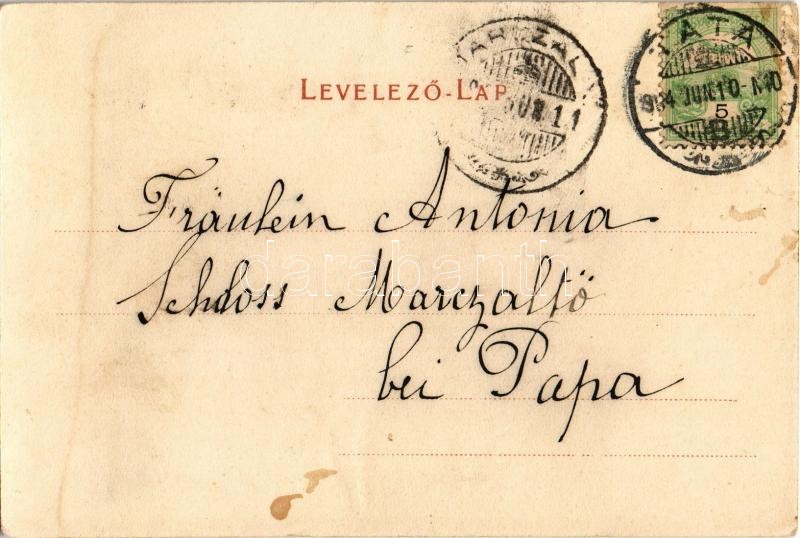 LEVELEZŐ-LAP
TATA
904 JUN.10
5
JUN 11
Fräulein Antonia
Schloss Marczaltö
bei Papa
darabanth